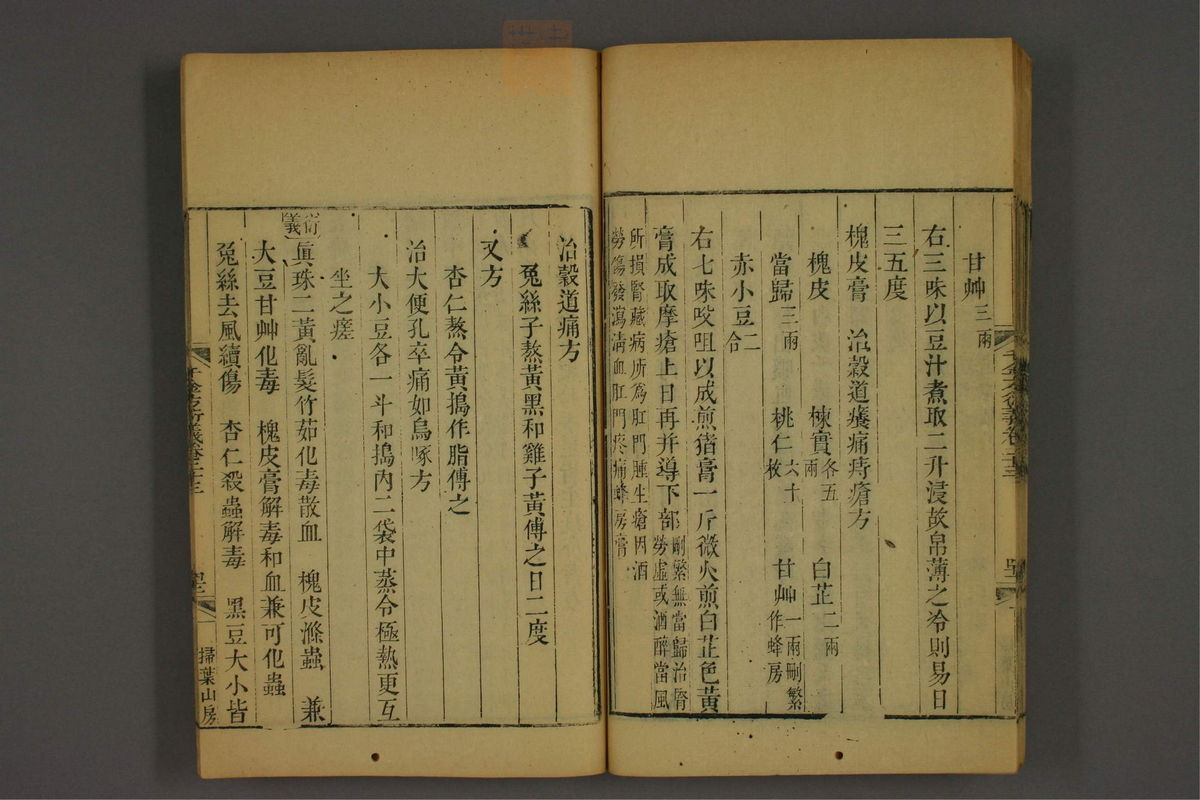 甘艸三兩
右三味以豆汁煮取二升浸故帛薄之冷則易日
三五度
槐皮膏　治穀道癢痛痔瘡方
槐皮　楝實各五兩　白芷二兩
當歸三兩　桃仁六十枚　甘艸一兩刪繁作蜂房
赤小豆二合
右七味㕮咀以成煎猪膏一斤微火煎白芷色黃
膏成取摩瘡上日再并導下部刪繁無當歸治腎勞虛或酒醉當風
所損腎藏病所為肛門腫生瘡因酒
勞傷發瀉清血肛門疼痛蜂房膏
治穀道痛方
兔絲子熬黃黑和雞子黃傅之日二度
又方
杏仁熬令黃搗作脂傅之
治大便孔卒痛如鳥啄方
大小豆各一斗和搗內二袋中蒸令極熱更互
坐之瘥
衍義
真珠二黃亂髮竹茹化毒散血　槐皮滌蟲　兼
大豆甘艸化毒　槐皮膏解毒和血兼可化蟲
兔絲去風續傷　杏仁殺蟲解毒　黑豆大小皆
千金方衍義卷二十三
掃葉山房